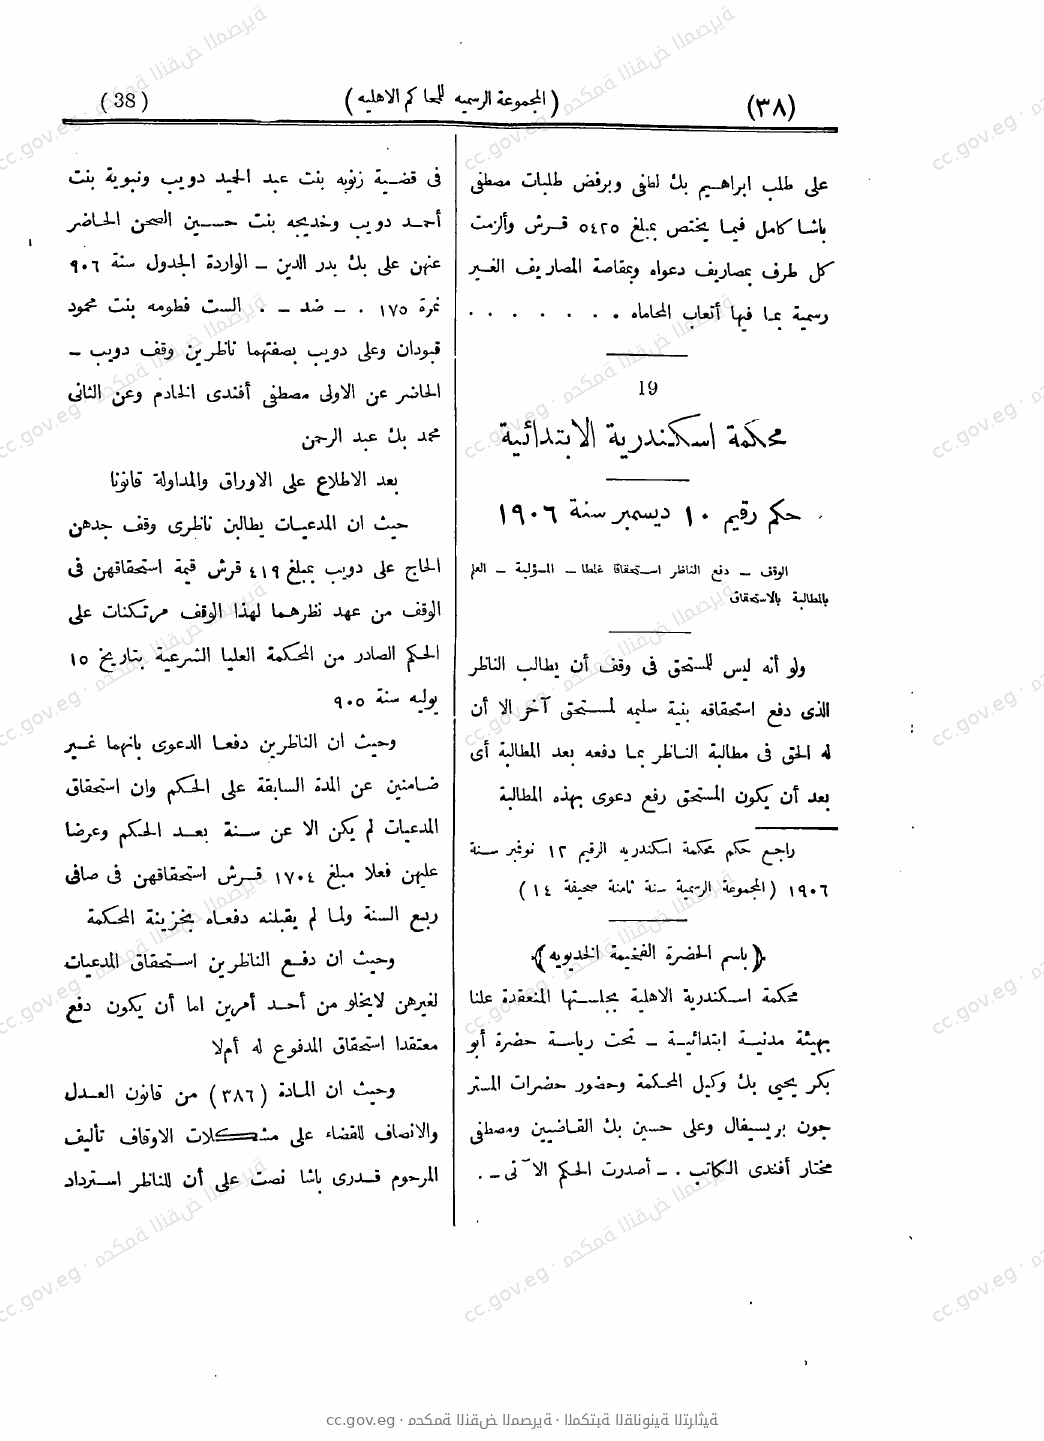 (٣٨)
(المجموعة الرسميه للمحاكم الاهليه)
(38)
على طلب ابراهيم بك لطفى وبرفض طلبات مصطفى
باشا كامل فيما يختص بمبلغ ٥٤٢٥ قرش وألزمت
كل طرف بمصاريف دعواه وبمقاصة المصاريف الغير
رسمية بما فيها أتعاب المحاماه . . . . . . .
19
محكمة اسكندرية الابتدائية
حكم رقيم ١٠ ديسمبر سنة ١٩٠٦
الوقف – دفع الناظر استحقاقا غلطا – المسؤلية – العلم
بالمطالبة بالاستحقاق
ولو أنه ليس للمستحق فى وقف أن يطالب الناظر
الذى دفع استحقاقه بنية سليمه لمستحق آخر الا أن
له الحق فى مطالبة الناظر بما دفعه بعد المطالبة أى
بعد أن يكون المستحق رفع دعوى بهذه المطالبة
راجع حكم محكمة اسكندريه الرقيم ١٢ نوفمبر سنة
١٩٠٦ (المجموعة الرسمية سنة ثامنة صحيفة ١٤)
﴿باسم الحضرة الفخيمة الخديويه﴾
محكمة اسكندرية الاهلية بجلستها المنعقدة علنا
بهيئة مدنية ابتدائية – تحت رياسة حضرة أبو
بكر يحيى بك وكيل المحكمة وحضور حضرات المستر
جون بريسيفال وعلى حسين بك القاضيين ومصطفى
مختار أفندى الكاتب . – أصدرت الحكم الآتى – .
فى قضية زنوبه بنت عبد الحميد دويب ونبوية بنت
أحمد دويب وخديجه بنت حسين الصحن الحاضر
عنهن على بك بدر الدين – الواردة الجدول سنة ٩٠٦
نمرة ١٧٥ . – ضد – . الست فطومه بنت محمود
قبودان وعلى دويب بصفتهما ناظرين وقف دويب –
الحاضر عن الاولى مصطفى أفندى الخادم وعن الثانى
محمد بك عبد الرحمن
بعد الاطلاع على الاوراق والمداولة قانونا
حيث ان المدعيات يطالبن ناظرى وقف جدهن
الحاج على دويب بمبلغ ٤١٩ قرش قيمة استحقاقهن فى
الوقف من عهد نظرهما لهذا الوقف مرتكنات على
الحكم الصادر من المحكمة العليا الشرعية بتاريخ ١٥
يوليه سنة ٩٠٥
وحيث ان الناظرين دفعا الدعوى بانهما غير
ضامنين عن المدة السابقة على الحكم وان استحقاق
المدعيات لم يكن الا عن سنة بعد الحكم وعرضا
عليهن فعلا مبلغ ١٧٠٤ قرش استحقاقهن فى صافى
ريع السنة ولما لم يقبلنه دفعاه بخزينة المحكمة
وحيث ان دفع الناظرين استحقاق المدعيات
لغيرهن لايخلو من أحد أمرين اما أن يكون دفع
معتقدا استحقاق المدفوع له أم لا
وحيث ان المادة (٣٨٦) من قانون العدل
والانصاف للقضاء على مشكلات الاوقاف تأليف
المرحوم قدرى باشا نصت على أن للناظر استرداد
cc.gov.eg · محكمة النقض المصرية · المكتبة القانونية التراثية